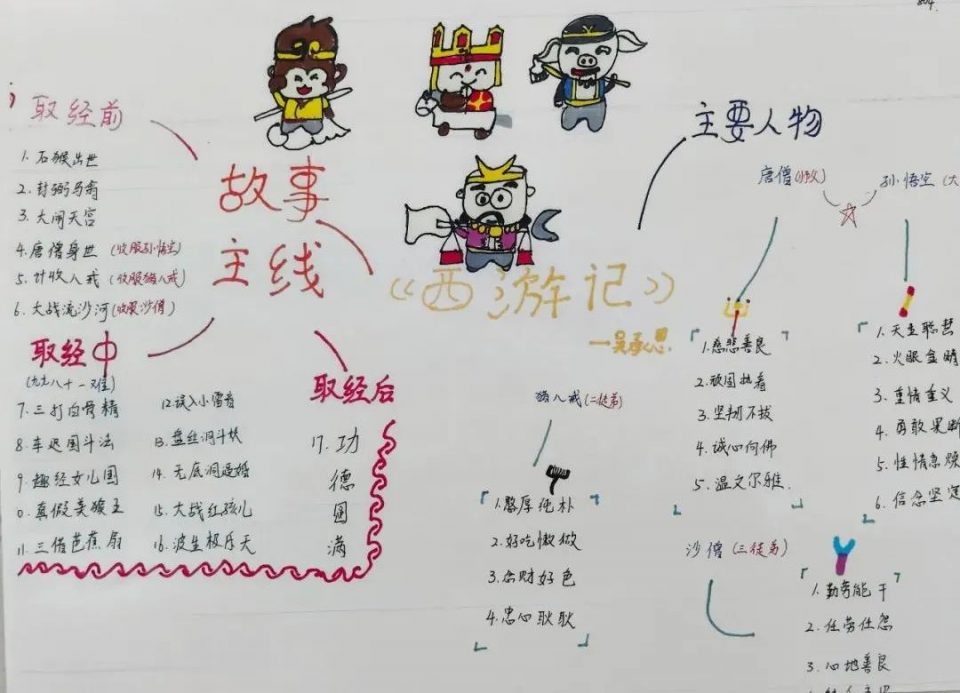 取经前
1. 石猴出世
2. 封弼马翁
3. 大闹天宫
4. 唐僧身世 (收服孙悟空)
5. 计收八戒 (收服猪八戒)
6. 大战流沙河 (收服沙僧)
故事
主线
取经中
(九九八十一难)
7. 三打白骨精
8. 车迟国斗法
9. 趣经女儿国
0. 真假美猴王
11. 三借芭蕉扇
12. 误入小雷音
13. 盘丝洞斗妖
14. 无底洞逼婚
15. 大战红孩儿
16. 波生极乐天
取经后
17. 功
德
圆
满
《西游记》
—吴承恩
主要人物
唐僧 (师父)
1. 慈悲善良
2. 顽固执着
3. 坚韧不拔
4. 诚心向佛
5. 温文尔雅.
孙悟空 (大
1. 天生聪慧
2. 火眼金睛
3. 重情重义
4. 勇敢果断
5. 性情急躁
6. 信念坚定
猪八戒 (二徒弟)
1. 憨厚纯朴
2. 好吃懒做
3. 贪财好色
4. 忠心耿耿
沙僧 (三徒弟)
1. 勤劳能干
2. 任劳任怨
3. 心地善良